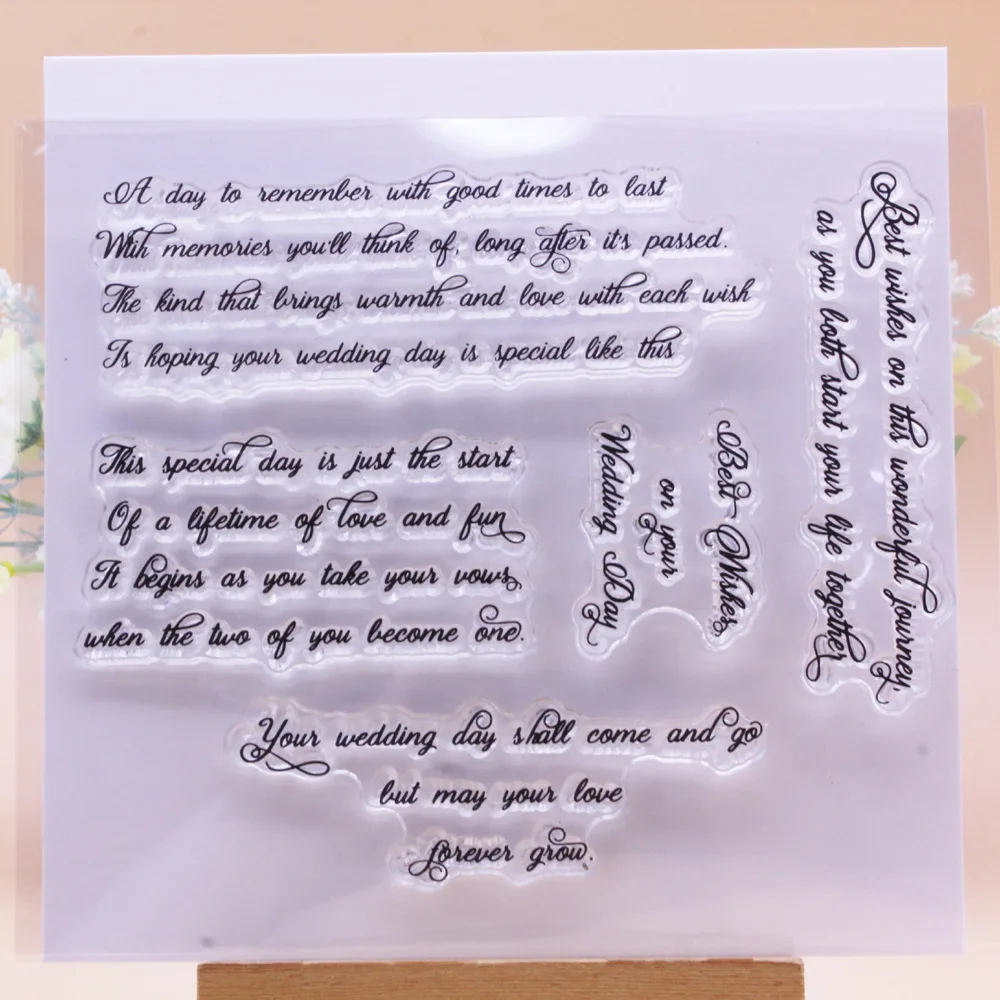 A day to remember with good times to last
With memories you'll think of, long after it's passed.
The kind that brings warmth and love with each wish
Is hoping your wedding day is special like this
This special day is just the start
Of a lifetime of love and fun
It begins as you take your vows,
when the two of you become one.
Best Wishes
on your
Wedding Day
Best wishes on this wonderful journey,
as you both start your life together
Your wedding day shall come and go
but may your love
forever grow.